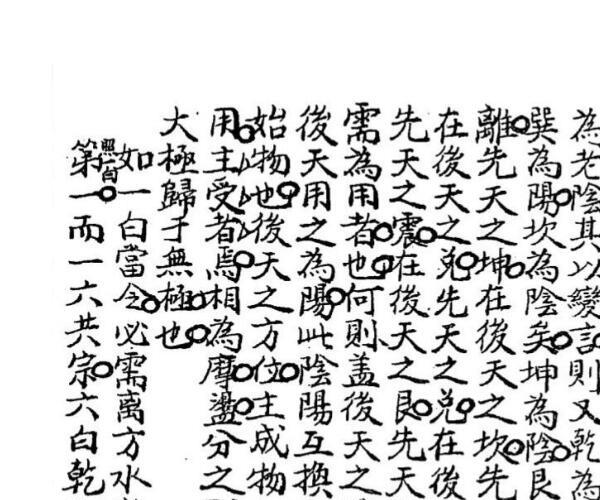 為老陰其以變言則又乾為
巽為陽坎為陰矣坤為陰艮
離先天之坤在後天之坎先
在後天之兌先天之兌在後
先天之震在後天之艮先天
需為用者也何則蓋後天之
後天用之為陽此陰陽互換
始物也後天之方位主成物
用主受者焉相為摩盪分之
大極歸于無極也
如一白當令必需离方水
第一而一六共宗六白乾